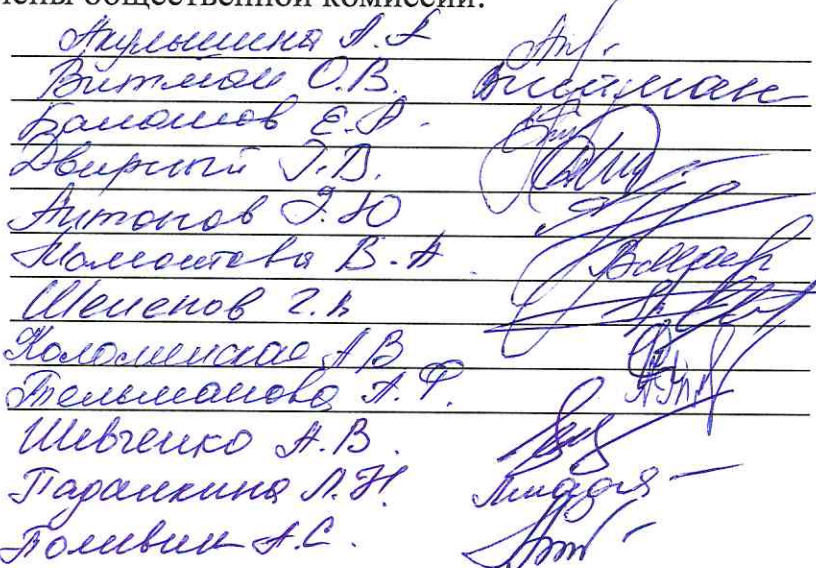 лены общественной комиссии:
Акулышина А. Г
Витман О.В. Витман
Балашов Е.А.
Дворный Г.В.
Антонов Э.Ю
Мамонтова В.А.
Шеленов Г.А
Коломенская А В
Тельманова А.Ф.
Шевченко А.В.
Падалкина Л.Н.
Поливин А.С.